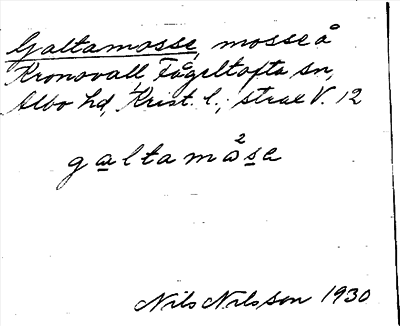 Galtamosse, mosse å
Kronovall, Fågeltofta sn,
Albo hd, Krist. l.; strax V. 12
galtamåse
2
Nils Nilsson 1930